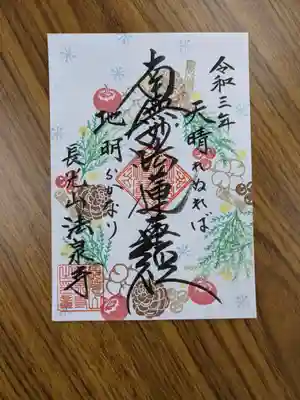 令和三年
天晴れぬれば
南無妙法蓮華経
地明らかなり
長光山法泉寺